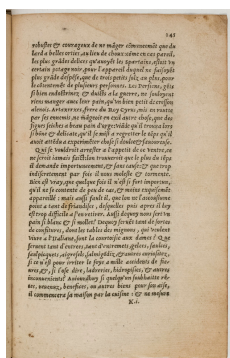 141
robustes & courageux de ne māger cōmunement que du
lard a belles orties, au lieu de choux cōme en cas pareil,
les plus grādes delices qu'eussent les Spartains, estoit vn
certain potage noir, pour l'appareil duquel ne faisoyēt
plus grāde despēse, que de trois petits solz en plus, pour
le contentemēt de plusieurs personnes. Les Persiens, gēts
si bien endoctrinez & duicts a la guerre, ne souloyent
riens manger auec leur pain, qu'vn bien petit de cresson
alenois. Artaxerxes, frere du Roy Cyrus, mis en route
par ses ennemis, ne māgeoit en exil autre chose, que des
figues seiches & pain d'orge: viāde qu'il trouua lors
si bōne & delicate, qu'il se mist a regretter le tēps qu'il
auoit attēdu a experimēter chose si doulce & sauoureuse.
Qui se vouldroit arrester a l'appetit de ce ventre, on
ne seroit iamais satisfaict
il demande importunément, & sans cause: & que trop
indiscretement par fois il nous moleste & tormente.
Bien est vray, que quelque fois il n'est si fort importun,
qu'il ne se contente de peu de cas, & moins exquisement
appareillé: mais aussi fault il, que lon ne l'accoustume
point a tant de friandises, desquelles puis apres il luy
est trop difficile a s'en retirer. Assis dequoy nous sert vn
pain si blanc & fueilleté? Dequoy seruēt tant de sortes
de confitures, dont les tables des mignons, qui veulent
viure a l'Italiana, sont la courtoisie aux dames? Que
seruent tant d'ostrees, tant d'entremets, gelees, saulses,
saulpiquets, aigresets, salmōgōdis, & autres curiositez,
si ce n'est pour irriter le foye a mille accidents de fie-
ures &, si l'ose dire, ladreries, hidropisies, & autres
inconueniēts? Auiourdhuy si quelqu'vn soubhaitte ri-
tes, reuenuz, benefices, ou autres biens pour son aise,
il commencera sa maison par la cuisine: & ne mesure
K.i.